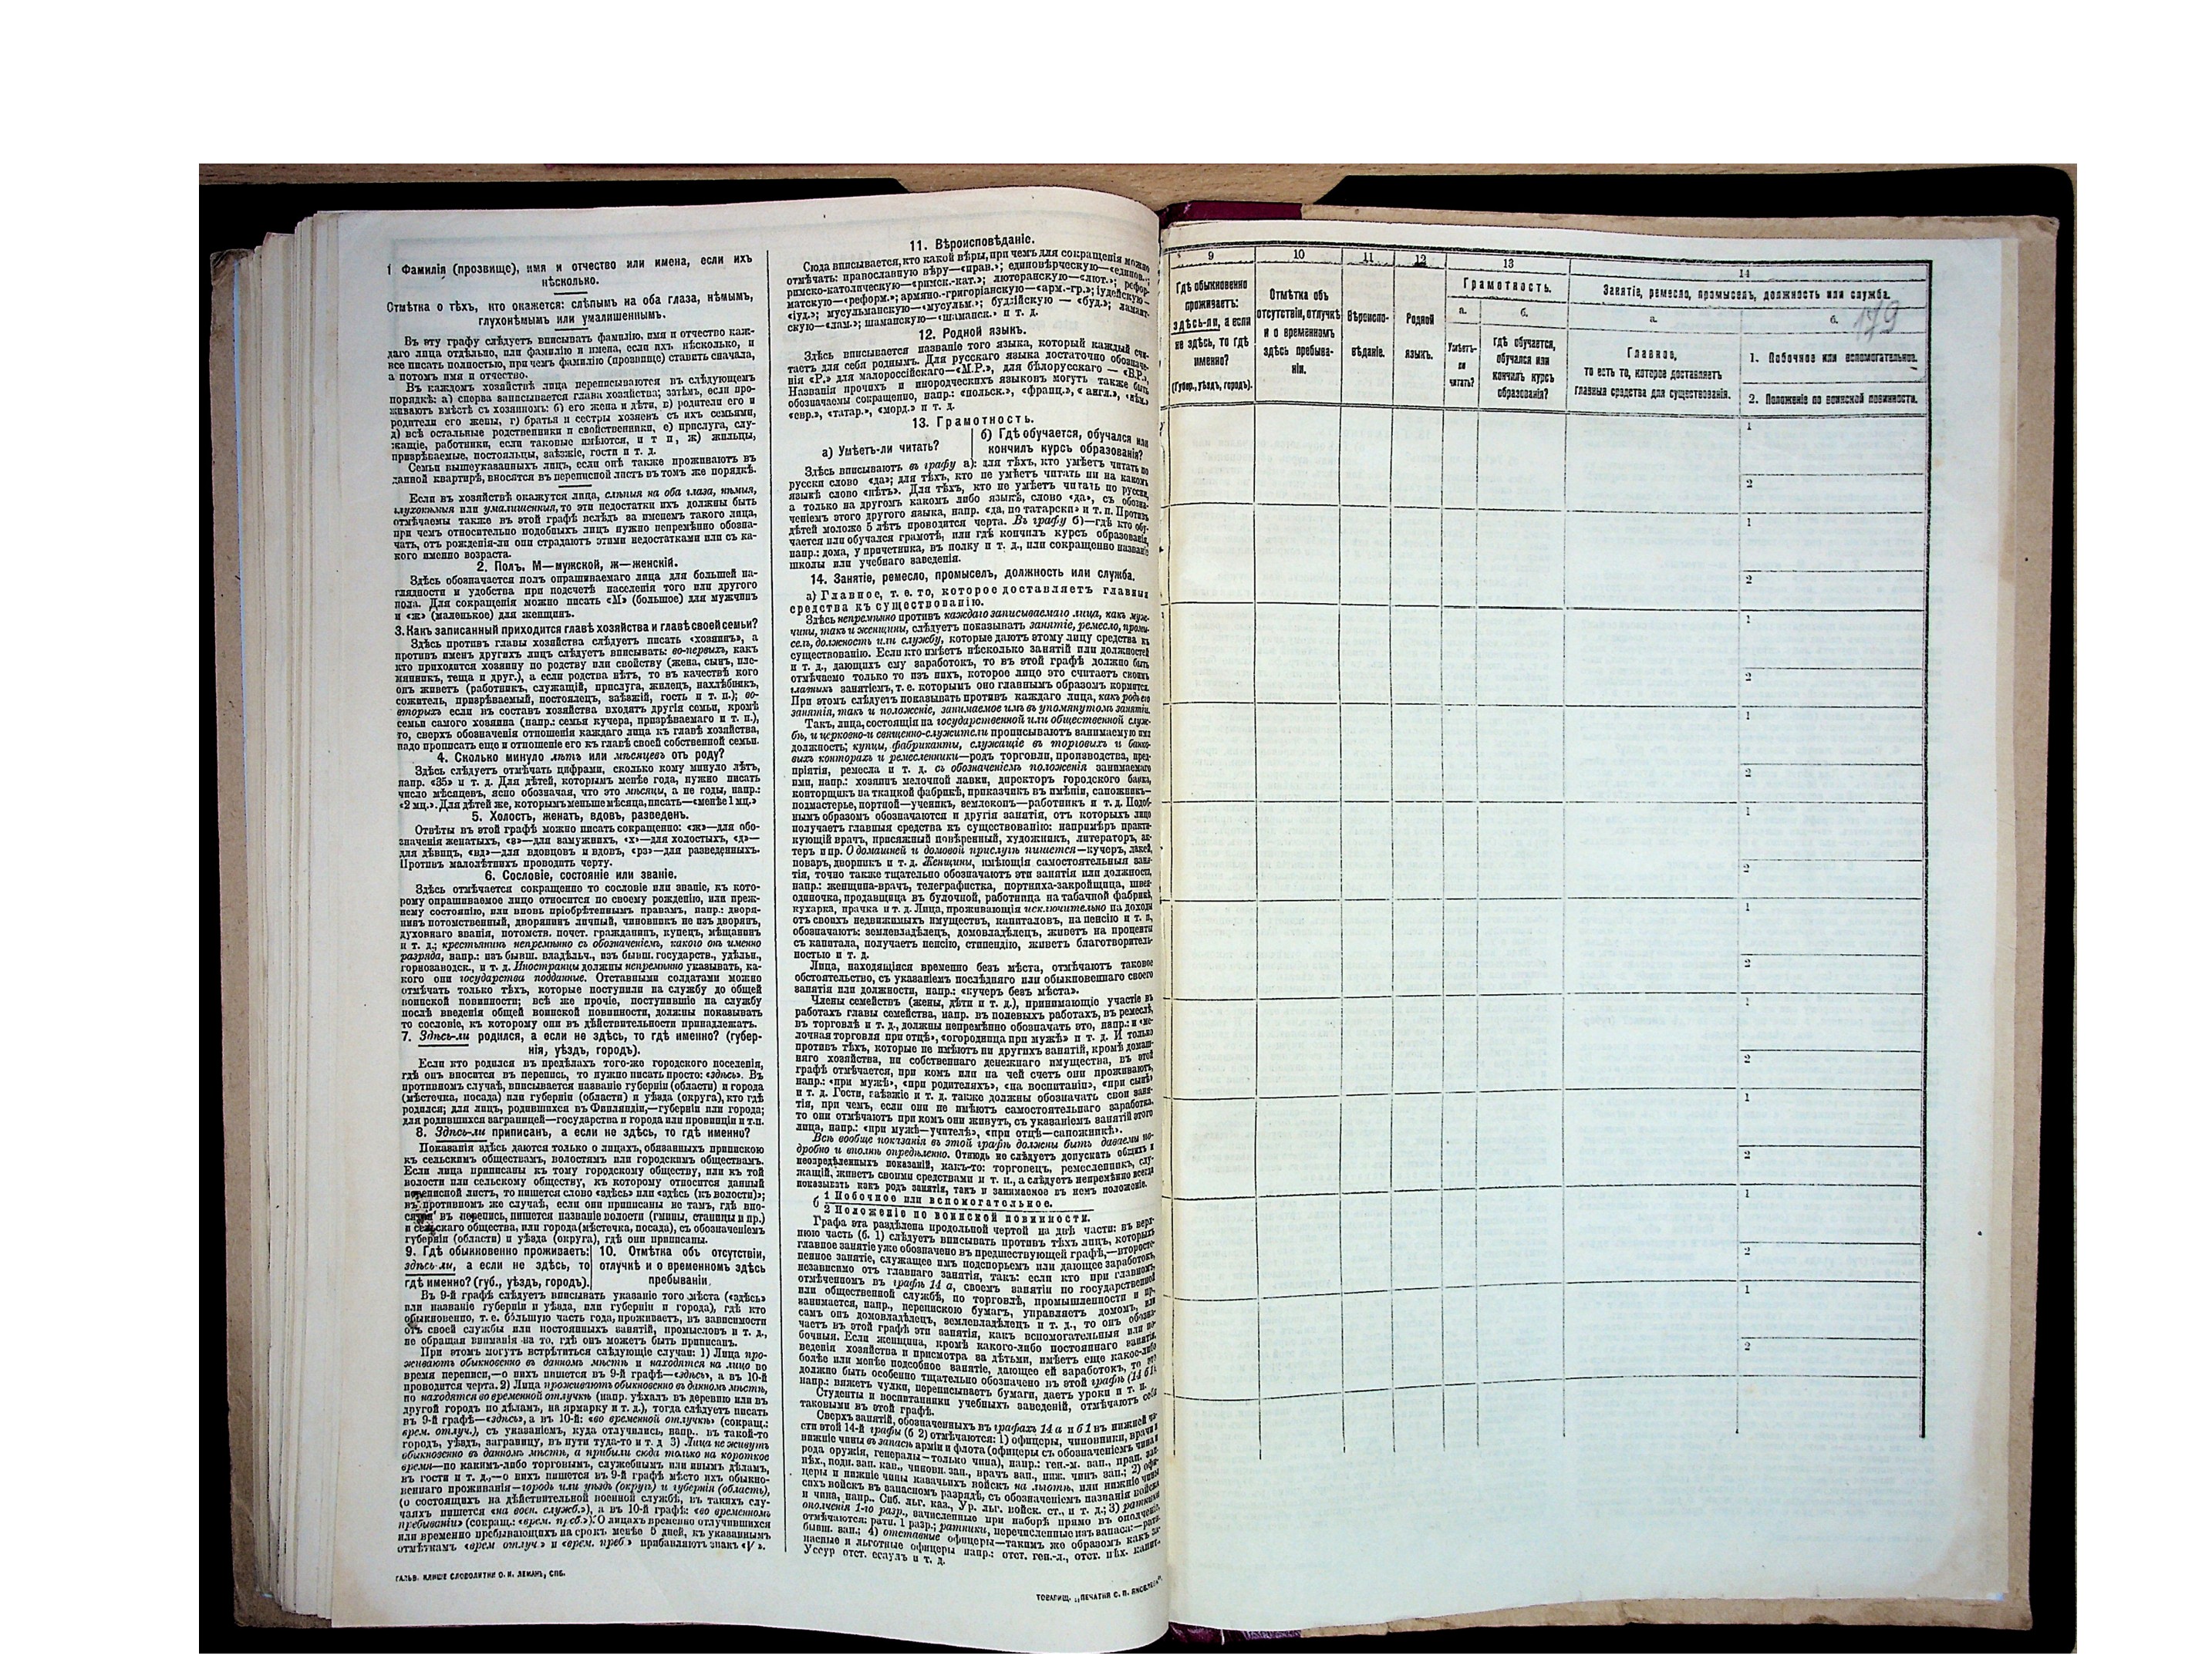 1 Фамилія (прозвище), имя и отчество или имена, если ихъ
нѣсколько.
Отмѣтка о тѣхъ, кто окажется: слѣпымъ на оба глаза, нѣмымъ,
глухонѣмымъ или умалишеннымъ.
Въ эту графу слѣдуетъ вписывать фамилію, имя и отчество каж-
даго лица отдѣльно, или фамилію и имена, если ихъ нѣсколько, и
все писать полностью, при чемъ фамилію (прозвище) ставить сначала,
а потомъ имя и отчество.
Въ каждомъ хозяйствѣ лица переписываются въ слѣдующемъ
порядкѣ: а) сперва записывается глава хозяйства; затѣмъ, если про-
живаютъ вмѣстѣ съ хозяиномъ: б) его жена и дѣти, в) родители его и
родители его жены, г) братья и сестры хозяевъ съ ихъ семьями,
д) всѣ остальные родственники и свойственники, е) прислуга, слу-
жащіе, работники, если таковые имѣются, и т п, ж) жильцы,
призрѣваемые, постояльцы, заѣзжіе, гости и т. д.
Семьи вышеуказанныхъ лицъ, если онѣ также проживаютъ въ
данной квартирѣ, вносятся въ переписной листъ въ томъ же порядкѣ.
Если въ хозяйствѣ окажутся лица, слѣпыя на оба глаза, нѣмыя,
глухонѣмыя или умалишенныя, то эти недостатки ихъ должны быть
отмѣчаемы также въ этой графѣ вслѣдъ за именемъ такого лица,
при чемъ относительно подобныхъ лицъ нужно непремѣнно обозна-
чать, отъ рожденія-ли они страдаютъ этими недостатками или съ ка-
кого именно возраста.
2. Полъ. М—мужской, ж—женскій.
Здѣсь обозначается полъ опрашиваемаго лица для большей на-
глядности и удобства при подсчетѣ населенія того или другого
пола. Для сокращенія можно писать «М» (большое) для мужчинъ
и «ж» (маленькое) для женщинъ.
3. Какъ записанный приходится главѣ хозяйства и главѣ своей семьи?
Здѣсь противъ главы хозяйства слѣдуетъ писать «хозяинъ», а
противъ именъ другихъ лицъ слѣдуетъ вписывать: во-первыхъ, какъ
кто приходится хозяину по родству или свойству (жена, сынъ, пле-
мянникъ, теща и друг.), а если родства нѣтъ, то въ качествѣ кого
онъ живетъ (работникъ, служащій, прислуга, жилецъ, нахлѣбникъ,
сожитель, призрѣваемый, постоялецъ, заѣзжій, гость и т. п.); во-
вторыхъ если въ составъ хозяйства входятъ другія семьи, кромѣ
семьи самого хозяина (напр.: семья кучера, призрѣваемаго и т. п.),
то, сверхъ обозначенія отношенія каждаго лица къ главѣ хозяйства,
надо прописать еще и отношеніе его къ главѣ своей собственной семьи.
4. Сколько минуло лѣтъ или мѣсяцевъ отъ роду?
Здѣсь слѣдуетъ отмѣчать цифрами, сколько кому минуло лѣтъ,
напр. «35» и т. д. Для дѣтей, которымъ менѣе года, нужно писать
число мѣсяцевъ, ясно обозначая, что это мѣсяцы, а не годы, напр.:
«2 мц.». Для дѣтей же, которымъ меньше мѣсяца, писать—«менѣе 1 мц.»
5. Холостъ, женатъ, вдовъ, разведенъ.
Отвѣты въ этой графѣ можно писать сокращенно: «ж»—для обо-
значенія женатыхъ, «з»—для замужнихъ, «х»—для холостыхъ, «д»—
для дѣвицъ, «вд»—для вдовцовъ и вдовъ, «рз»—для разведенныхъ.
Противъ малолѣтнихъ проводить черту.
6. Сословіе, состояніе или званіе.
Здѣсь отмѣчается сокращенно то сословіе или званіе, къ кото-
рому опрашиваемое лицо относится по своему рожденію, или преж-
нему состоянію, или вновь пріобрѣтеннымъ правамъ, напр.: дворя-
нинъ потомственный, дворянинъ личный, чиновникъ не изъ дворянъ,
духовнаго званія, потомств. почет. гражданинъ, купецъ, мѣщанинъ
и т. д.; крестьянинъ непремѣнно съ обозначеніемъ, какого онъ именно
разряда, напр.: изъ бывш. владѣльч., изъ бывш. государств., удѣльн.,
горнозаводск., и т. д. Иностранцы должны непремѣнно указывать, ка-
кого они государства подданные. Отставными солдатами можно
отмѣчать только тѣхъ, которые поступили на службу до общей
воинской повинности; всѣ же прочіе, поступившіе на службу
послѣ введенія общей воинской повинности, должны показывать
то сословіе, къ которому они въ дѣйствительности принадлежатъ.
7. Здѣсь-ли родился, а если не здѣсь, то гдѣ именно? (губер-
нія, уѣздъ, городъ).
Если кто родился въ предѣлахъ того-же городского поселенія,
гдѣ онъ вносится въ перепись, то нужно писать просто: «здѣсь». Въ
противномъ случаѣ, вписывается названіе губерніи (области) и города
(мѣстечка, посада) или губерніи (области) и уѣзда (округа), кто гдѣ
родился; для лицъ, родившихся въ Финляндіи,—губерніи или города;
для родившихся заграницей—государства и города или провинціи и т.п.
8. Здѣсь-ли приписанъ, а если не здѣсь, то гдѣ именно?
Показанія здѣсь даются только о лицахъ, обязанныхъ припискою
къ сельскимъ обществамъ, волостямъ или городскимъ обществамъ.
Если лица приписаны къ тому городскому обществу, или къ той
волости или сельскому обществу, къ которому относится данный
переписной листъ, то пишется слово «здѣсь» или «здѣсь (къ волости)»;
въ противномъ же случаѣ, если они приписаны не тамъ, гдѣ вно-
сятся въ перепись, пишется названіе волости (гмины, станицы и пр.)
и сельскаго общества, или города (мѣстечка, посада), съ обозначеніемъ
губерніи (области) и уѣзда (округа), гдѣ они приписаны.
9. Гдѣ обыкновенно проживаетъ: здѣсь-ли, а если не здѣсь, то гдѣ именно? (губ., уѣздъ, городъ).
10. Отмѣтка объ отсутствіи, отлучкѣ и о временномъ здѣсь пребываніи.
Въ 9-й графѣ слѣдуетъ вписывать указаніе того мѣста («здѣсь»
или названіе губерніи и уѣзда, или губерніи и города), гдѣ кто
обыкновенно, т. е. бо́льшую часть года, проживаетъ, въ зависимости
отъ своей службы или постоянныхъ занятій, промысловъ и т. д.,
не обращая вниманія на то, гдѣ онъ можетъ быть приписанъ.
При этомъ могутъ встрѣтиться слѣдующіе случаи: 1) Лица про-
живаютъ обыкновенно въ данномъ мѣстѣ и находятся на лицо во
время переписи,—о нихъ пишется въ 9-й графѣ—«здѣсь», а въ 10-й
проводится черта. 2) Лица проживаютъ обыкновенно въ данномъ мѣстѣ,
но находятся во временной отлучкѣ (напр. уѣхалъ въ деревню или въ
другой городъ по дѣламъ, на ярмарку и т. д.), тогда слѣдуетъ писать
въ 9-й графѣ—«здѣсь», а въ 10-й: «во временной отлучкѣ» (сокращ.:
врем. отлуч.), съ указаніемъ, куда отлучились, напр.. въ такой-то
городъ, уѣздъ, заграницу, въ пути туда-то и т. д 3) Лица не живутъ
обыкновенно въ данномъ мѣстѣ, а прибыли сюда только на короткое
время—по какимъ-либо торговымъ, служебнымъ или инымъ дѣламъ,
въ гости и т. д.,—о нихъ пишется въ 9-й графѣ мѣсто ихъ обыкно-
веннаго проживанія—городъ или уѣздъ (округъ) и губернія (область),
(о состоящихъ на дѣйствительной военной службѣ, въ такихъ слу-
чаяхъ пишется «на воен. служб.»), а въ 10-й графѣ: «во временномъ
пребываніи» (сокращ.: «врем. преб.»). О лицахъ временно отлучившихся
или временно пребывающихъ на срокъ менѣе 5 дней, къ указаннымъ
отмѣткамъ «врем отлуч.» и «врем. преб.» прибавляютъ знакъ «V».
ГАЛЬВ. КЛИШЕ СЛОВОЛИТНИ О. И. ЛЕМАНЪ, СПБ.
11. Вѣроисповѣданіе.
Сюда вписывается, кто какой вѣры, при чемъ для сокращенія можно
отмѣчать: православную вѣру—«прав.»; единовѣрческую—«единов.»;
римско-католическую—«римск.-кат.»; лютеранскую—«лют.»; рефор-
матскую—«реформ.»; армяно.-григоріанскую—«арм.-гр.»; іудейскую—
«іуд.»; мусульманскую—«мусульм.»; буддійскую — «буд.»; ламаит-
скую—«лам.»; шаманскую—«шаманск.» и т. д.
12. Родной языкъ.
Здѣсь вписывается названіе того языка, который каждый счи-
таетъ для себя роднымъ. Для русскаго языка достаточно обозначе-
нія «Р.» для малороссійскаго—«М.Р.», для бѣлорусскаго — «Б.Р.»,
Названія прочихъ и инородческихъ языковъ могутъ также быть
обозначаемы сокращенно, напр.: «польск.», «франц.», « англ.», «нѣм.»
«евр.», «татар.», «морд.» и т. д.
13. Грамотность.
а) Умѣетъ-ли читать?
б) Гдѣ обучается, обучался или
кончилъ курсъ образованія?
Здѣсь вписываютъ въ графу а): для тѣхъ, кто умѣетъ читать по
русски слово «да»; для тѣхъ, кто не умѣетъ читать ни на какомъ
языкѣ слово «нѣтъ». Для тѣхъ, кто не умѣетъ читать по русски,
а только на другомъ какомъ либо языкѣ, слово «да», съ обозна-
ченіемъ этого другого языка, напр. «да, по татарски» и т. п. Противъ
дѣтей моложе 5 лѣтъ проводится черта. Въ графу б)—гдѣ кто обу-
чается или обучался грамотѣ, или гдѣ кончилъ курсъ образованія,
напр.: дома, у причетника, въ полку и т. д., или сокращенно названіе
школы или учебнаго заведенія.
14. Занятіе, ремесло, промыселъ, должность или служба.
а) Главное, т. е. то, которое доставляетъ главныя
средства къ существованію.
Здѣсь непремѣнно противъ каждаго записываемаго лица, какъ муж-
чины, такъ и женщины, слѣдуетъ показывать занятіе, ремесло, промы-
селъ, должность или службу, которые даютъ этому лицу средства къ
существованію. Если кто имѣетъ нѣсколько занятій или должностей
и т. д., дающихъ ему заработокъ, то въ этой графѣ должно быть
отмѣчаемо только то изъ нихъ, которое лицо это считаетъ своимъ
главнымъ занятіемъ, т. е. которымъ оно главнымъ образомъ кормится.
При этомъ слѣдуетъ показывать противъ каждаго лица, какъ родъ его
занятія, такъ и положеніе, занимаемое имъ въ упомянутомъ занятіи.
Такъ, лица, состоящія на государственной или общественной служ-
бѣ, и церковно-и священно-служители прописываютъ занимаемую ими
должность; купцы, фабриканты, служащіе въ торговыхъ и банко-
выхъ конторахъ и ремесленники—родъ торговли, производства, пред-
пріятія, ремесла и т. д. съ обозначеніемъ положенія занимаемаго
ими, напр.: хозяинъ мелочной лавки, директоръ городского банка,
конторщикъ на ткацкой фабрикѣ, приказчикъ въ имѣніи, сапожникъ—
подмастерье, портной—ученикъ, землекопъ—работникъ и т. д. Подоб-
нымъ образомъ обозначаются и другія занятія, отъ которыхъ лицо
получаетъ главныя средства къ существованію: напримѣръ практи-
кующій врачъ, присяжный повѣренный, художникъ, литераторъ, ак-
теръ и пр. О домашней и домовой прислугѣ пишется—кучеръ, лакей,
поваръ, дворникъ и т. д. Женщины, имѣющія самостоятельныя заня-
тія, точно также тщательно обозначаютъ эти занятія или должности,
напр.: женщина-врачъ, телеграфистка, портниха-закройщица, швея-
одиночка, продавщица въ булочной, работница на табачной фабрикѣ,
кухарка, прачка и т. д. Лица, проживающія исключительно на доходы
отъ своихъ недвижимыхъ имуществъ, капиталовъ, на пенсію и т. п,
обозначаютъ: землевладѣлецъ, домовладѣлецъ, живетъ на проценты
съ капитала, получаетъ пенсію, стипендію, живетъ благотворитель-
ностью и т. д.
Лица, находящіяся временно безъ мѣста, отмѣчаютъ таковое
обстоятельство, съ указаніемъ послѣдняго или обыкновеннаго своего
занятія или должности, напр.: «кучеръ безъ мѣста».
Члены семействъ (жены, дѣти и т. д.), принимающіе участіе въ
работахъ главы семейства, напр. въ полевыхъ работахъ, въ ремеслѣ,
въ торговлѣ и т. д., должны непремѣнно обозначать это, напр.: и «ме-
лочная торговля при отцѣ», «огородница при мужѣ» и т. д. И только
противъ тѣхъ, которые не имѣютъ ни другихъ занятій, кромѣ домаш-
няго хозяйства, ни собственнаго денежнаго имущества, въ этой
графѣ отмѣчается, при комъ или на чей счетъ они проживаютъ,
напр.: «при мужѣ», «при родителяхъ», «на воспитаніи», «при сынѣ»
и т. д. Гости, заѣзжіе и т. д. также должны обозначать свои заня-
тія, при чемъ, если они не имѣютъ самостоятельнаго заработка,
то они отмѣчаютъ при комъ они живутъ, съ указаніемъ занятій этого
лица, напр.: «при мужѣ—учителѣ», «при отцѣ—сапожникѣ».
Всѣ вообще показанія въ этой графѣ должны быть даваемы по-
дробно и вполнѣ опредѣленно. Отнюдь не слѣдуетъ допускать общихъ и
неопредѣленныхъ показаній, какъ-то: торговецъ, ремесленникъ, слу-
жащій, живетъ своими средствами и т. п., а слѣдуетъ непремѣнно всегда
показывать какъ родъ занятія, такъ и занимаемое въ немъ положеніе.
б 1 Побочное или вспомогательное.
2 Положеніе по воинской повинности.
Графа эта раздѣлена продольной чертой на двѣ части: въ верх-
нюю часть (б. 1) слѣдуетъ вписывать противъ тѣхъ лицъ, которыхъ
главное занятіе уже обозначено въ предшествующей графѣ,—второсте-
пенное занятіе, служащее имъ подспорьемъ или дающее заработокъ,
независимо отъ главнаго занятія, такъ: если кто при главномъ,
отмѣченномъ въ графѣ 14 а, своемъ занятіи по государственной
или общественной службѣ, по торговлѣ, промышленности и пр.
занимается, напр., перепискою бумагъ, управляетъ домомъ, или
самъ онъ домовладѣлецъ, землевладѣлецъ и т. д., то онъ обозна-
чаетъ въ этой графѣ эти занятія, какъ вспомогательныя или по-
бочныя. Если женщина, кромѣ какого-либо постояннаго занятія,
веденія хозяйства и присмотра за дѣтьми, имѣетъ еще какое-либо
болѣе или менѣе подсобное занятіе, дающее ей заработокъ, то это
должно быть особенно тщательно обозначено въ этой графѣ (14 б1),
напр.: вяжетъ чулки, переписываетъ бумаги, даетъ уроки и т. п.
Студенты и воспитанники учебныхъ заведеній, отмѣчаютъ себя
таковыми въ этой графѣ.
Сверхъ занятій, обозначенныхъ въ графахъ 14 а и б1 въ нижней ча-
сти этой 14-й графы (б 2) отмѣчаются: 1) офицеры, чиновники, врачи и
нижніе чины въ запасѣ арміи и флота (офицеры съ обозначеніемъ чина и
рода оружія, генералы—только чина), напр.: ген.-м. зап., прап. зап.
пѣх., подп. зап. кав., чиновн. зап., врачъ зап., ниж. чинъ зап.; 2) офи-
церы и нижніе чины казачьихъ войскъ на льготѣ, или нижніе чины
сихъ войскъ въ запасномъ разрядѣ, съ обозначеніемъ названія войска
и чина, напр.. Спб. льг. каз., Ур. льг. войск. ст., и т. д.; 3) ратники
ополченія 1-го разр., зачисленные при наборѣ прямо въ ополченіе,
отмѣчаются: ратн. 1 разр.; ратники, перечисленные изъ запаса:—ратн.
бывш. зап.; 4) отставные офицеры—такимъ же образомъ какъ за-
пасные и льготные офицеры напр.: отст. ген.-л., отст. пѣх. капит.,
Уссур отст. есаулъ и т. д.
ТОВАРИЩ. „ПЕЧАТНЯ С. П. ЯКОВЛЕВА“,
9
10
11
12
13
14
Гдѣ обыкновенно
проживаетъ:
здѣсь-ли, а если
не здѣсь, то гдѣ
именно?
(Губер., уѣздъ, городъ).
Отмѣтка объ
отсутствіи, отлучкѣ
и о временномъ
здѣсь пребыва-
ніи.
Вѣроиспо-
вѣданіе.
Родной
языкъ.
Грамотность.
а.
Умѣетъ-
ли
читать?
б.
Гдѣ обучается,
обучался или
кончилъ курсъ
образованія?
Занятіе, ремесло, промыселъ, должность или служба.
а.
Главное,
то есть то, которое доставляетъ
главныя средства для существованія.
б.
179
1. Побочное или вспомогательное.
2. Положеніе по воинской повинности.
1
2
1
2
1
2
1
2
1
2
1
2
1
2
1
2
1
2
1
2